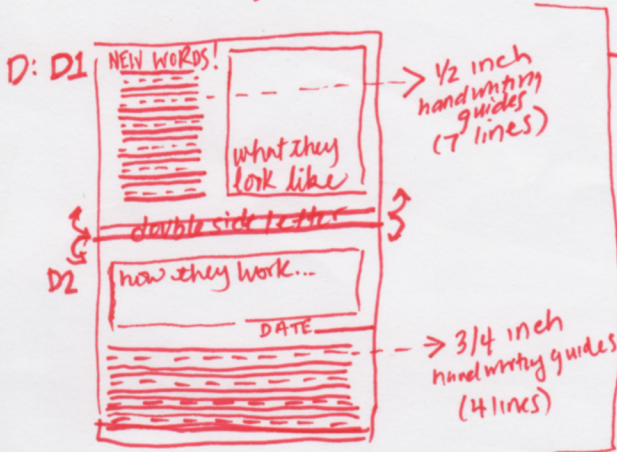 D: D1
NEW WORDS!
what they
look like
1/2 inch
handwriting
guides
(7 lines)
double side letter
D2
how they work...
DATE
3/4 inch
handwriting guides
(4 lines)